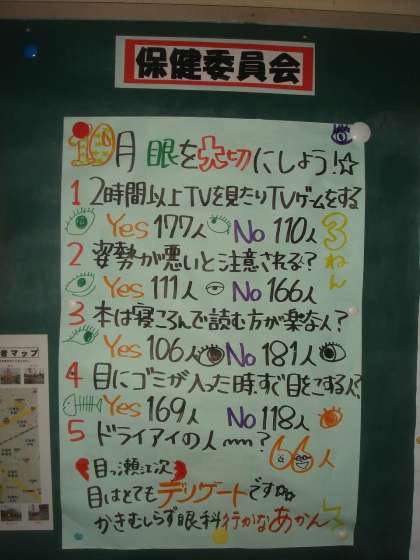 保健委員会
10月 眼を大切にしよう!☆
1 2時間以上TVを見たりTVゲームをする
Yes 177人 No 110人
3ねん
2 姿勢が悪いと注意される?
Yes 111人 No 166人
3 本は寝ころんで読む方が楽な人?
Yes 106人 No 181人
4 目にゴミが入った時、すぐ目をこする人?
Yes 169人 No 118人
5 ドライアイの人〰?
66人
目っ瀬江次
目はとてもデリゲートです☆
かきむしらず眼科行かなあかん